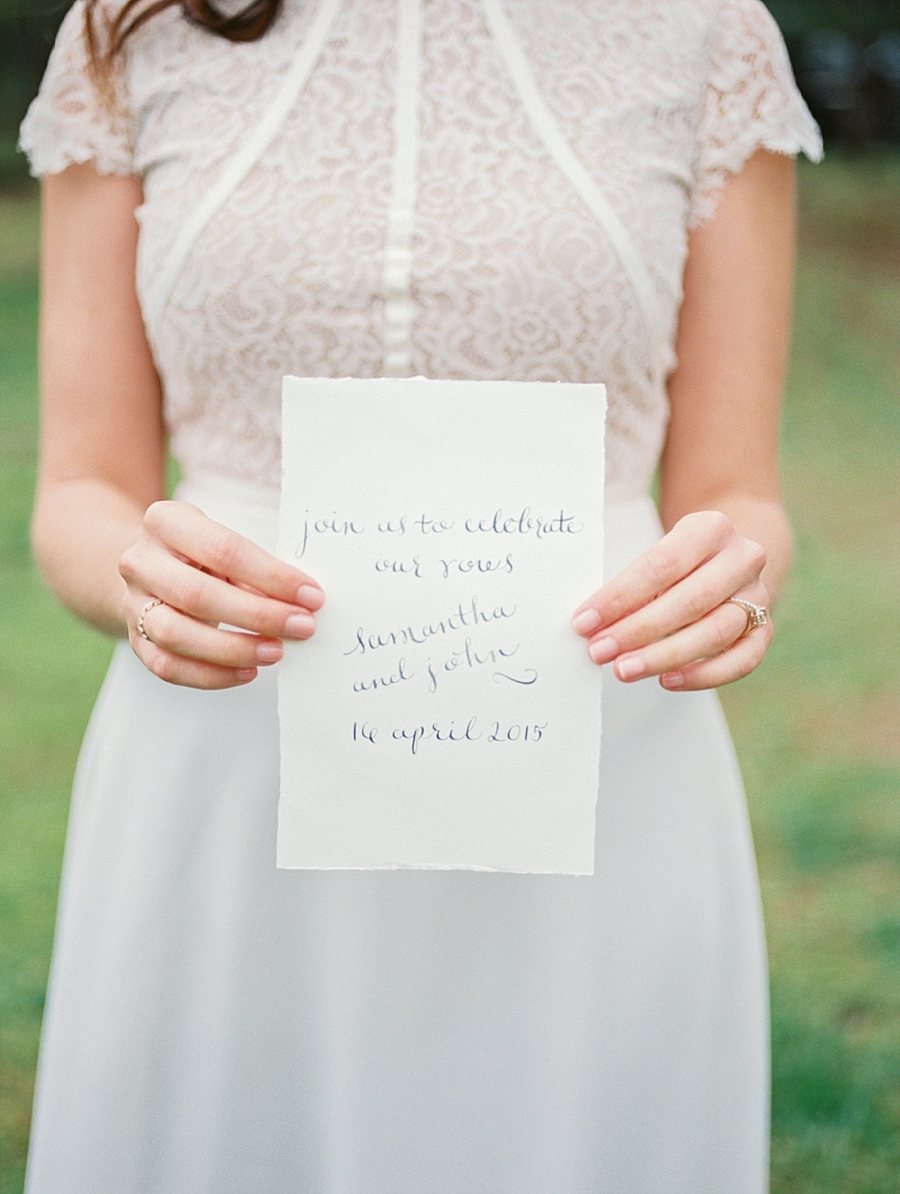 join us to celebrate
our vows
samantha
and john
16 april 2015